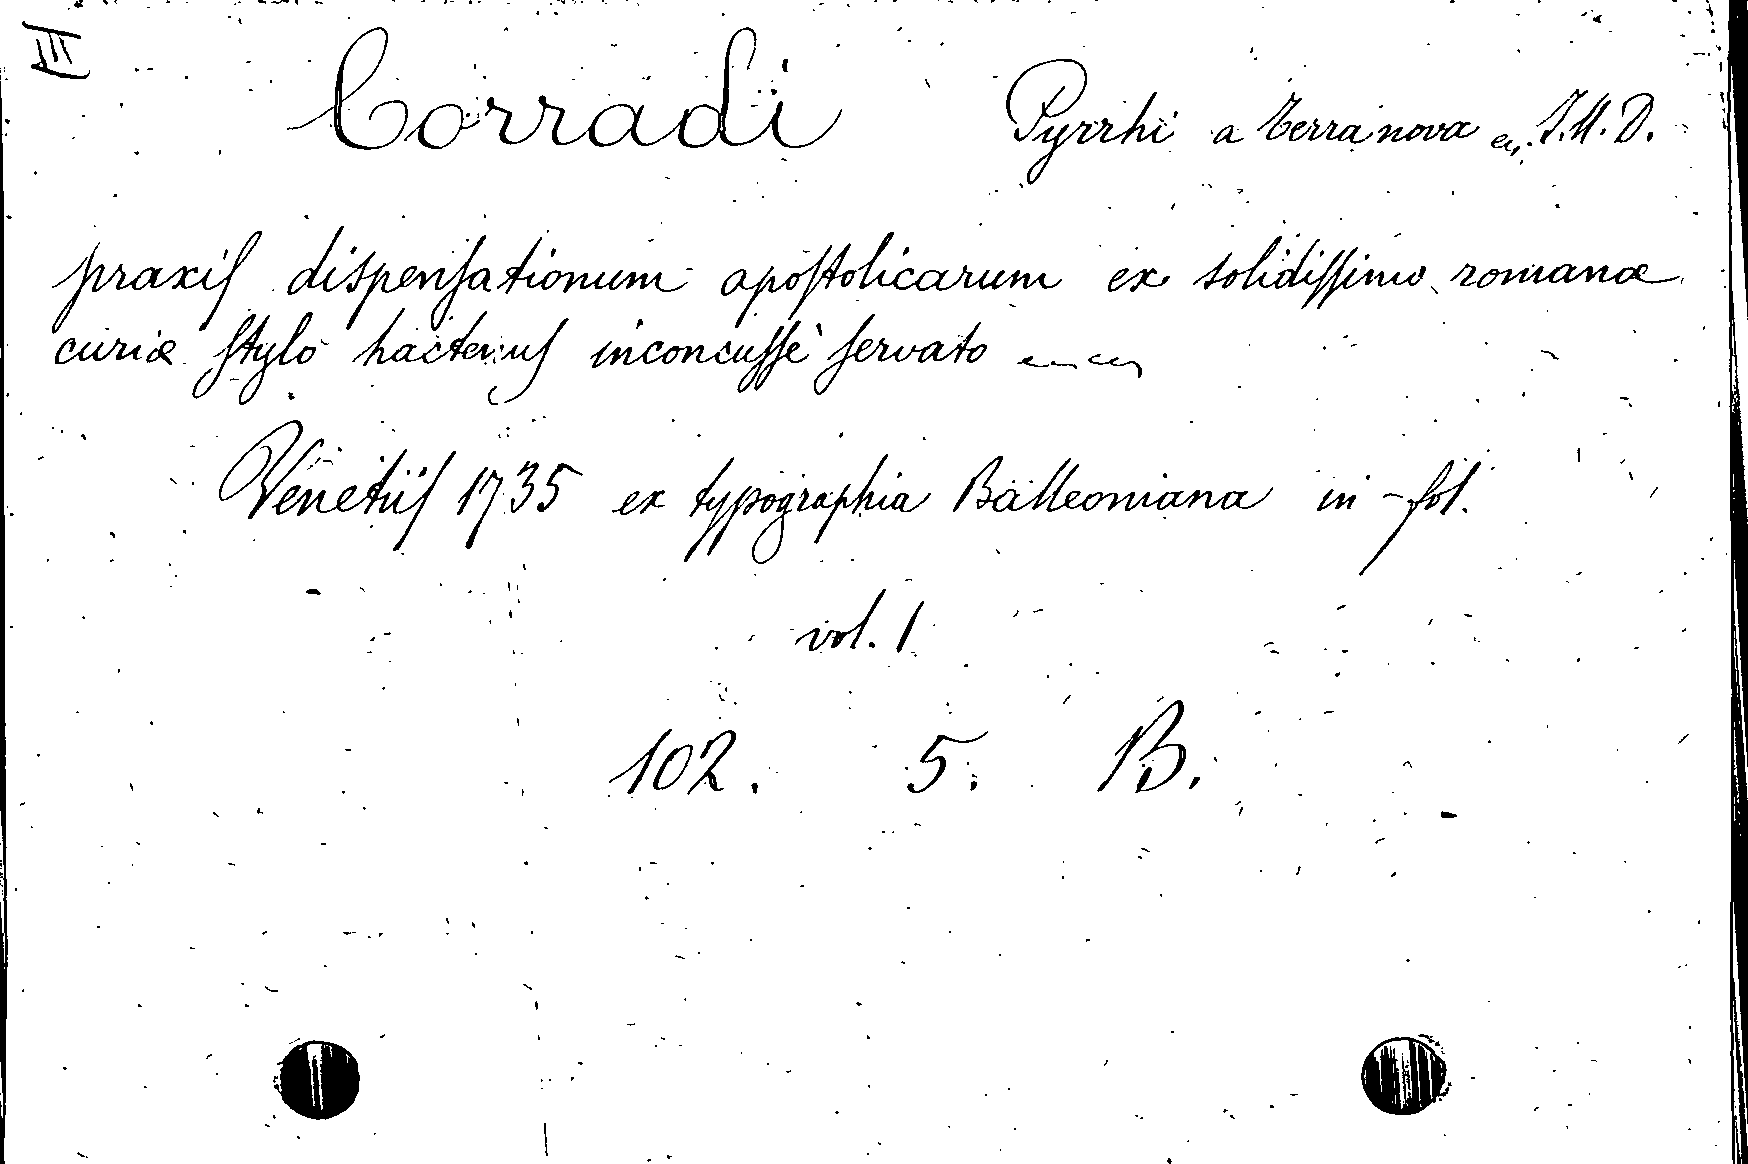 III
Corradi Pyrrhi a Terra nova ec. J. U. D.
praxiſ dispenſationum apoſtolicarum ex solidiſſimo romanæ
curiæ ſtylo hactenuſ inconcuſſè ſervato
Venetiiſ 1735 ex typographia Balleoniana in-fol.
vol. 1
102. 5. B.